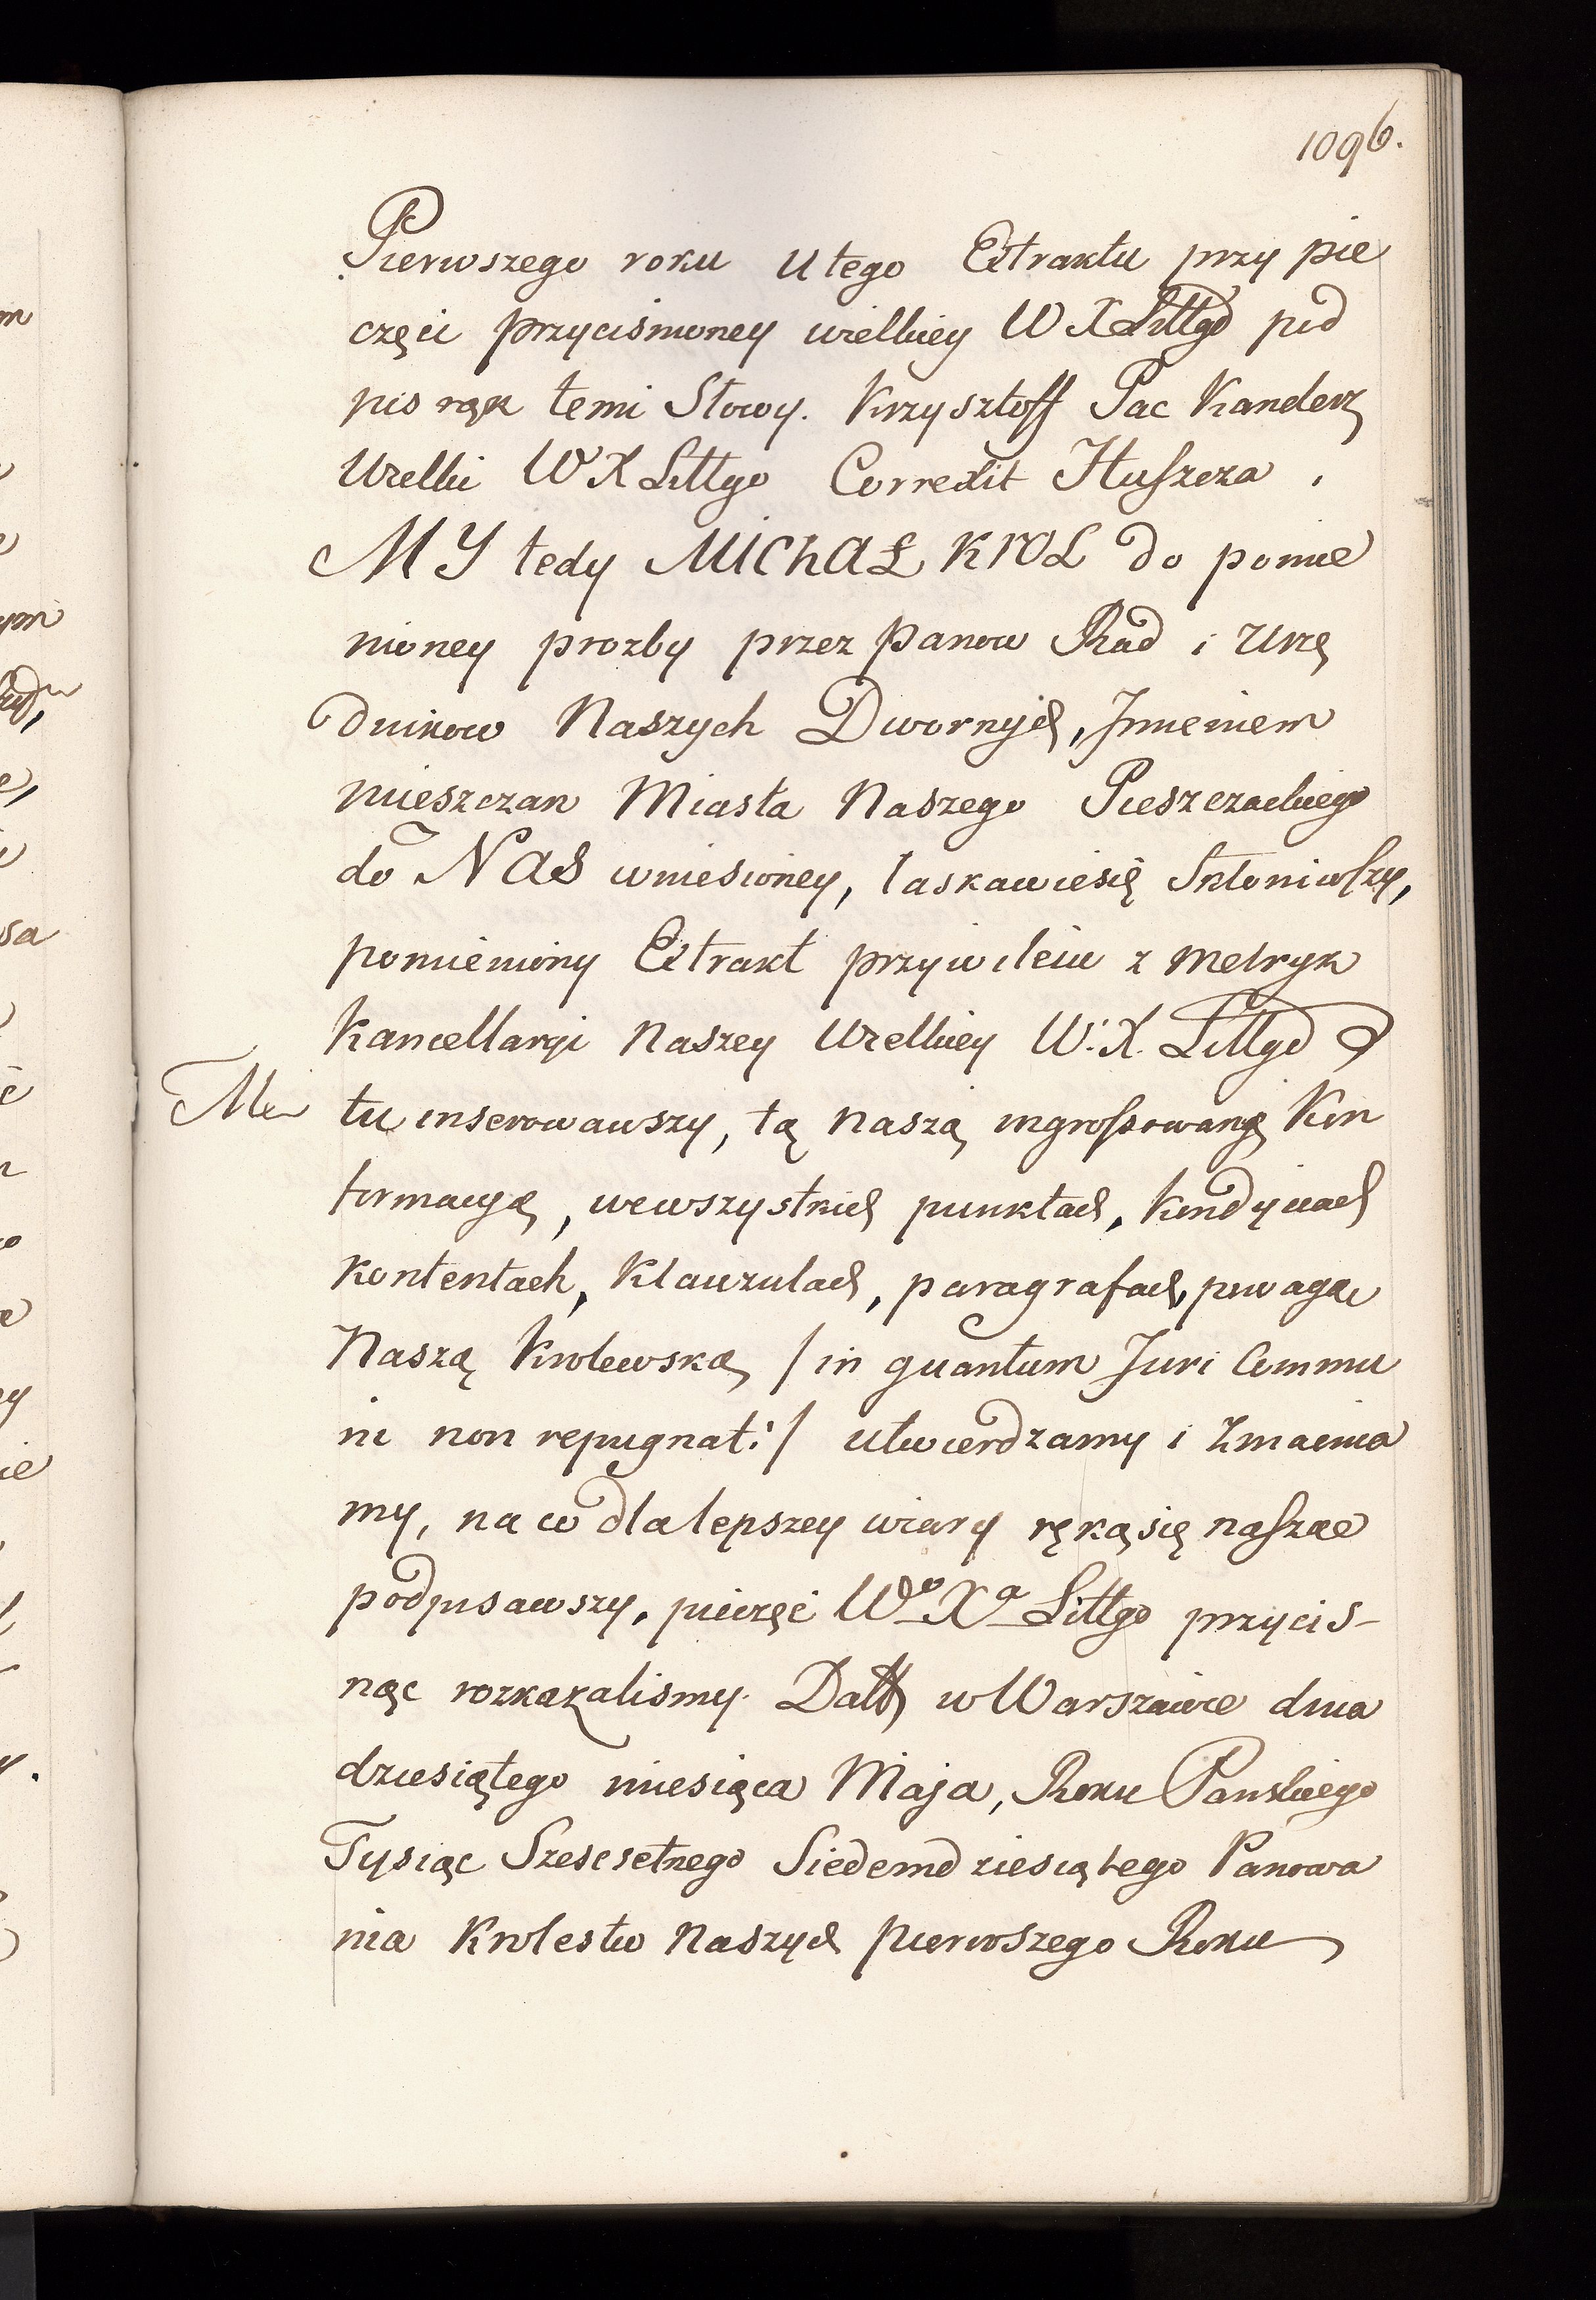 1096.
Pierwszego roku U tego Extraktu przy pie
częci przycisnioney wielkiey W X Littgo pod
pis rąk temi Słowy. Krzysztoff Pac Kanclerz
Wielki W X Littgo Correxit Huszcza.
MY tedy MICHAŁ KROL do pomie
nioney prozby przez Panow Rad i Urzę
dnikow Naszych Dwornych, Imieniem
mieszczan Miasta Naszego Pieszczackiego
do NAS wniesioney, łaskawie się Skłoniwszy,
pomieniony Extrakt przywileiu z Metryk
Kancellaryi Naszey Wielkiey W. X. Littgo
tu inserowawszy, tą naszą ingrossowaną Kon
formacyą, we wszystkich punktach, kondycyach
kontentach, Klauzulach, paragrafach, powagą
Naszą Krolewską /in quantum Juri Commu
ni non repugnat:/ utwierdzamy i Zmacnia
my, na co dla lepszey wiary ręką się naszą
podpisawszy, pieczęć Wo Xa Littgo przycis-
nąć rozkazalismy. Datt w Warszawie dnia
dziesiątego miesiąca Maja, Roku Panskiego
Tysiąc Szescsetnego Siedemdziesiątego Panowa
nia Krolestw Naszych Pierwszego Roku